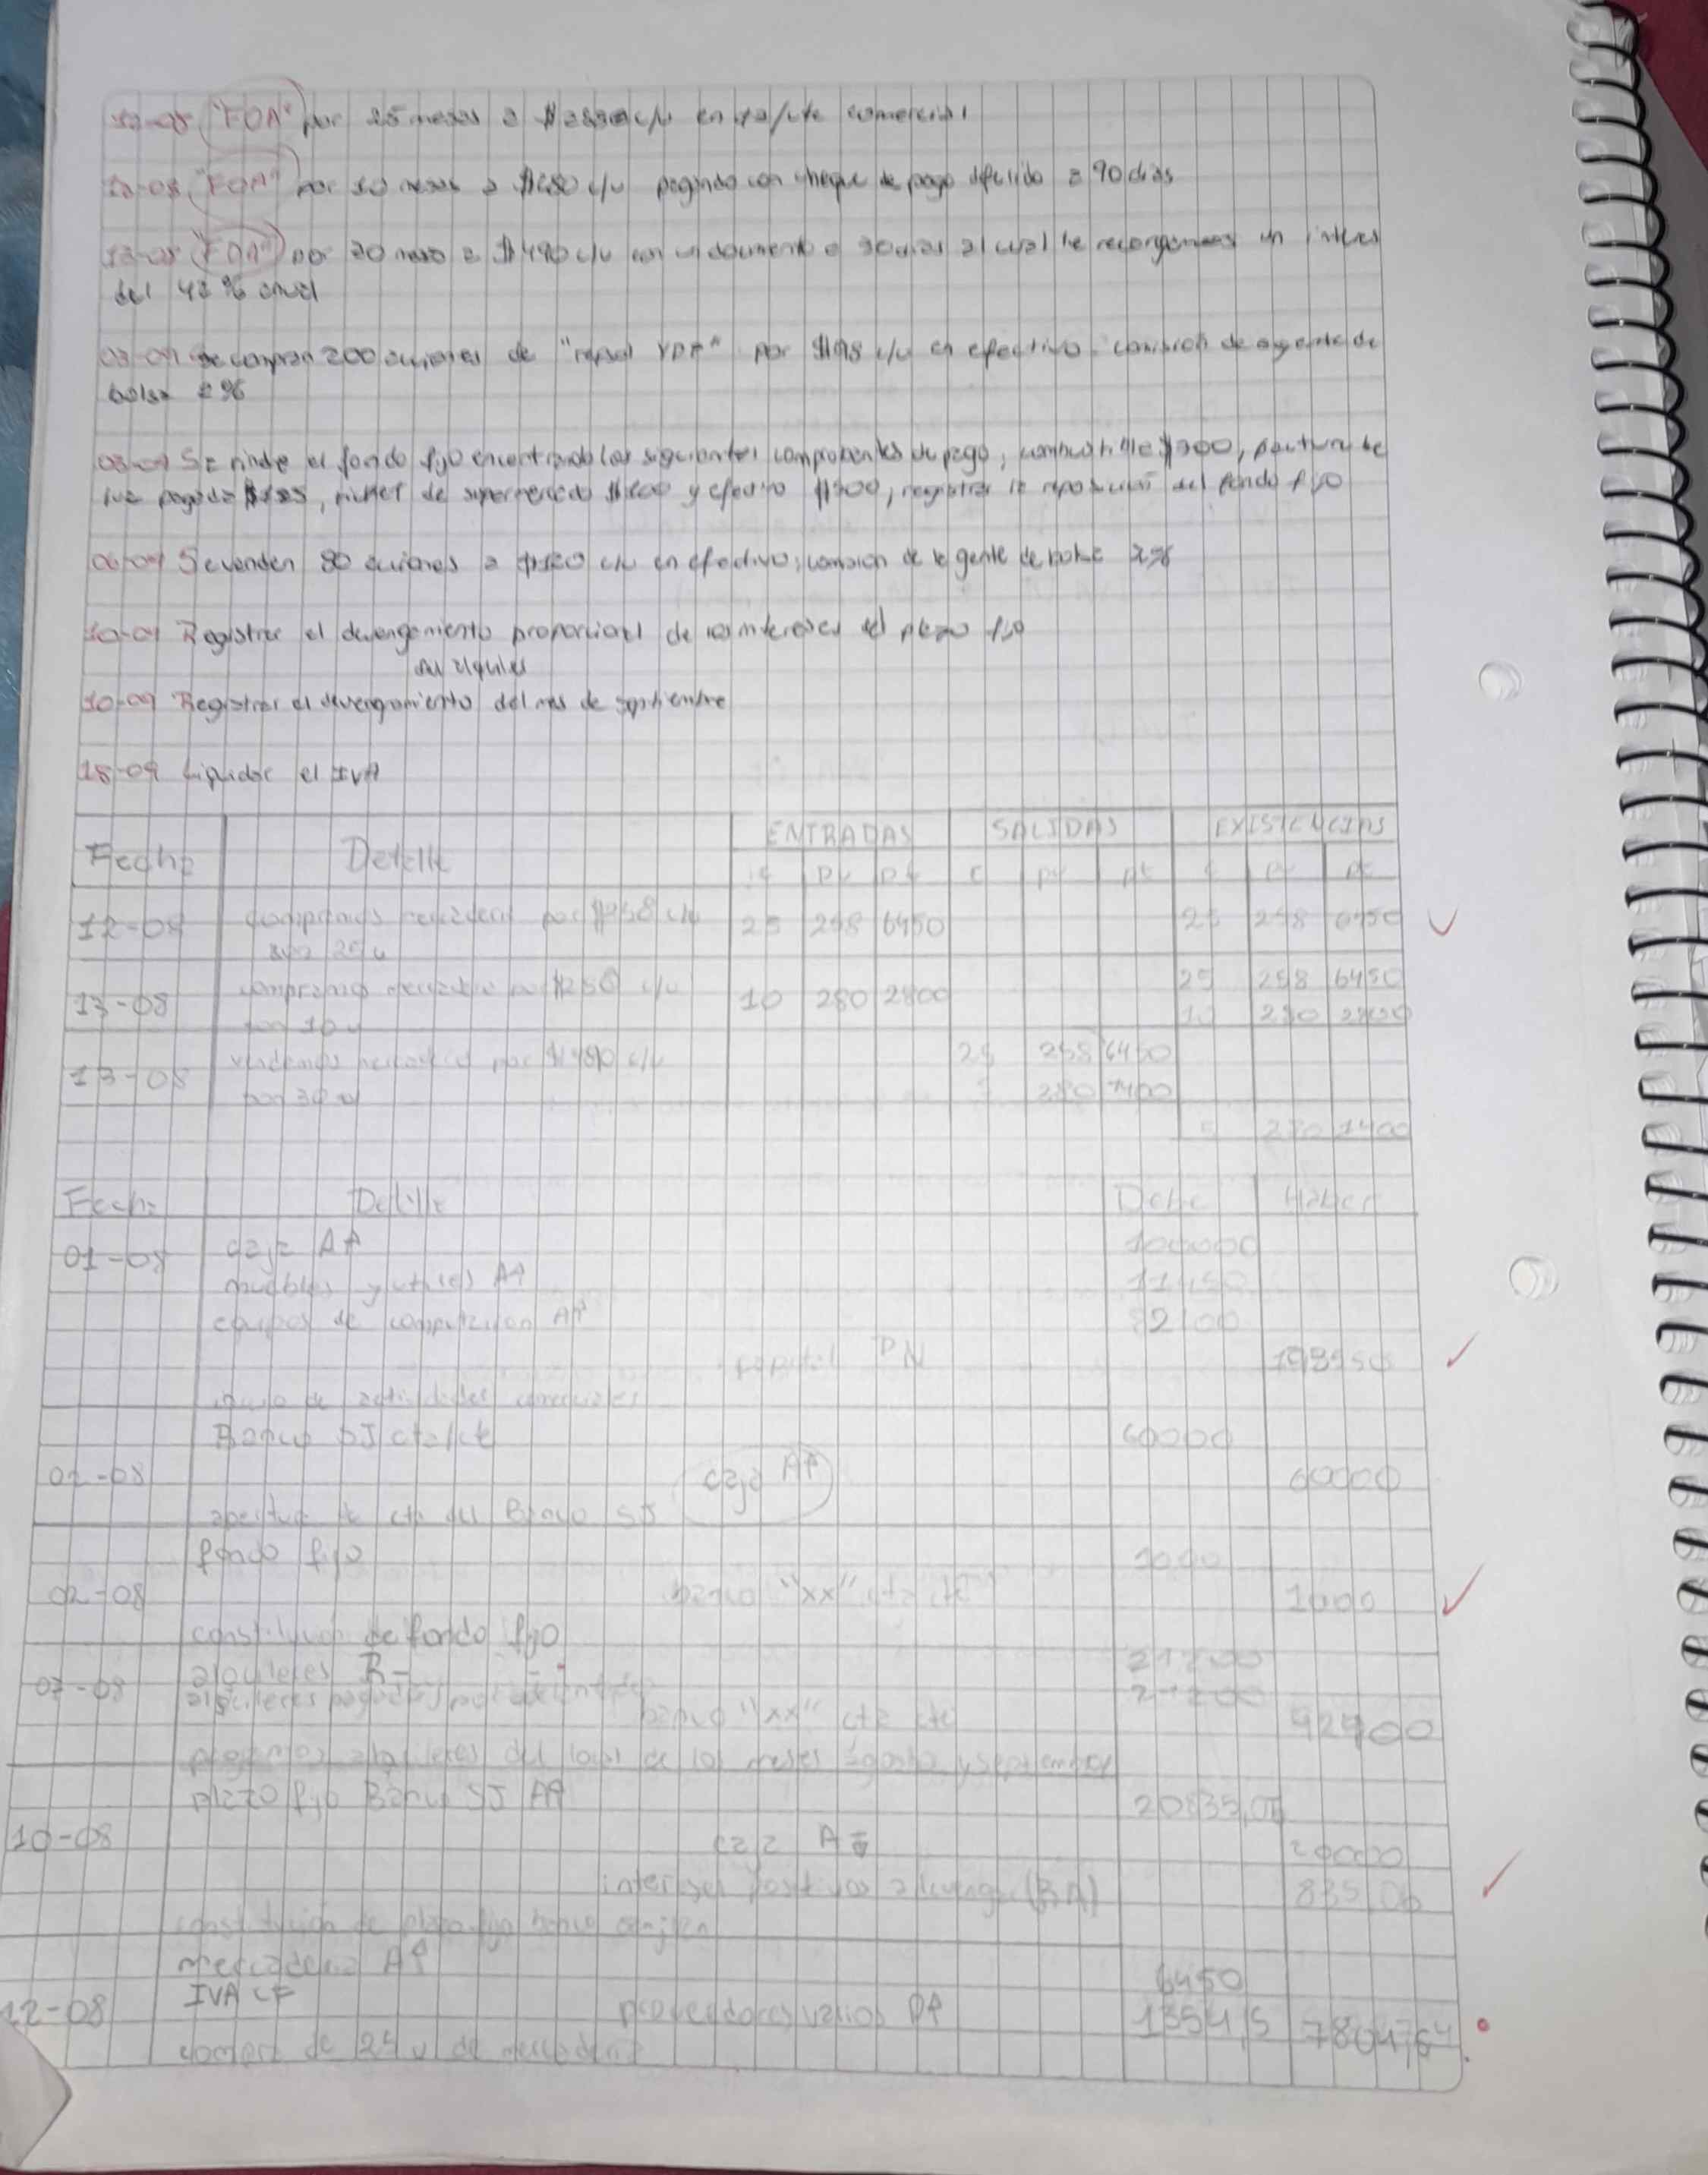 12-08 "FOA" por 25 mesas a c/u en cta/cte comercial
12-08 "FOA" por 10 mesas a c/u pagando con cheque de pago diferido a 90 dias
13-08 "FOA" por 30 mesas a $490 c/u con un documento a 30 dias al cual le recargamos un interes
del 42% anual
03-09 Se compran 200 acciones de "repsol YPF" por $198 c/u en efectivo. comision de agente de
bolsa 2%
03-09 Se rinde el fondo fijo encontrando los siguientes comprobantes de pago, combustible $300, factura de
luz pagada ticket de supermercado y efectivo registrar la reposicion del fondo fijo
06-09 Se venden 80 acciones a $220 c/u en efectivo; comision de la gente de bolsa 2%
10-09 Registrar el devengamiento proporcional de los intereses del plazo fijo
alquiler
10-09 Registrar el devengamiento del mes de septiembre
18-09 Liquidar el IVA
Fecha Detalle ENTRADAS SALIDAS EXISTENCIAS
c pu pt c pu pt c pu pt
12-08 compramos mercaderia por $258 c/u 25 258 6450 25 258 6450
25 u
13-08 compramos mercaderia por $280 c/u 10 280 2800 25 258 6450
por 10 u 10 280 2800
13-08 vendemos mercaderia por $490 c/u 25 258 6450
por 30 u 5 280 1400
5 280 1400
Fecha Detalle Debe Haber
01-08 caja A+ 100000
muebles y utiles A+ 11450
equipos de computacion A+ 82100
capital PN 193550
inicio de actividades comerciales
Banco SJ cta/cte 60000
02-08 caja A+ 60000
apertura de cta del Banco SJ
fondo fijo 1000
02-08 banco "xx" cta cte 1000
constitucion de fondo fijo
alquileres R- 21200
07-08 alquileres pagados por adelantado 21200
banco "xx" cta cte 42400
pagamos alquileres del local de los meses agosto y septiembre
plazo fijo Banco SJ A+ 20835,06
10-08 caja A- 20000
intereses positivos a devengar (RA) 835,06
constitucion de plazo fijo banco
mercaderia A+ 6450
12-08 IVA CF 1354,5
proveedores varios P+
compra de 25 u de mercaderia